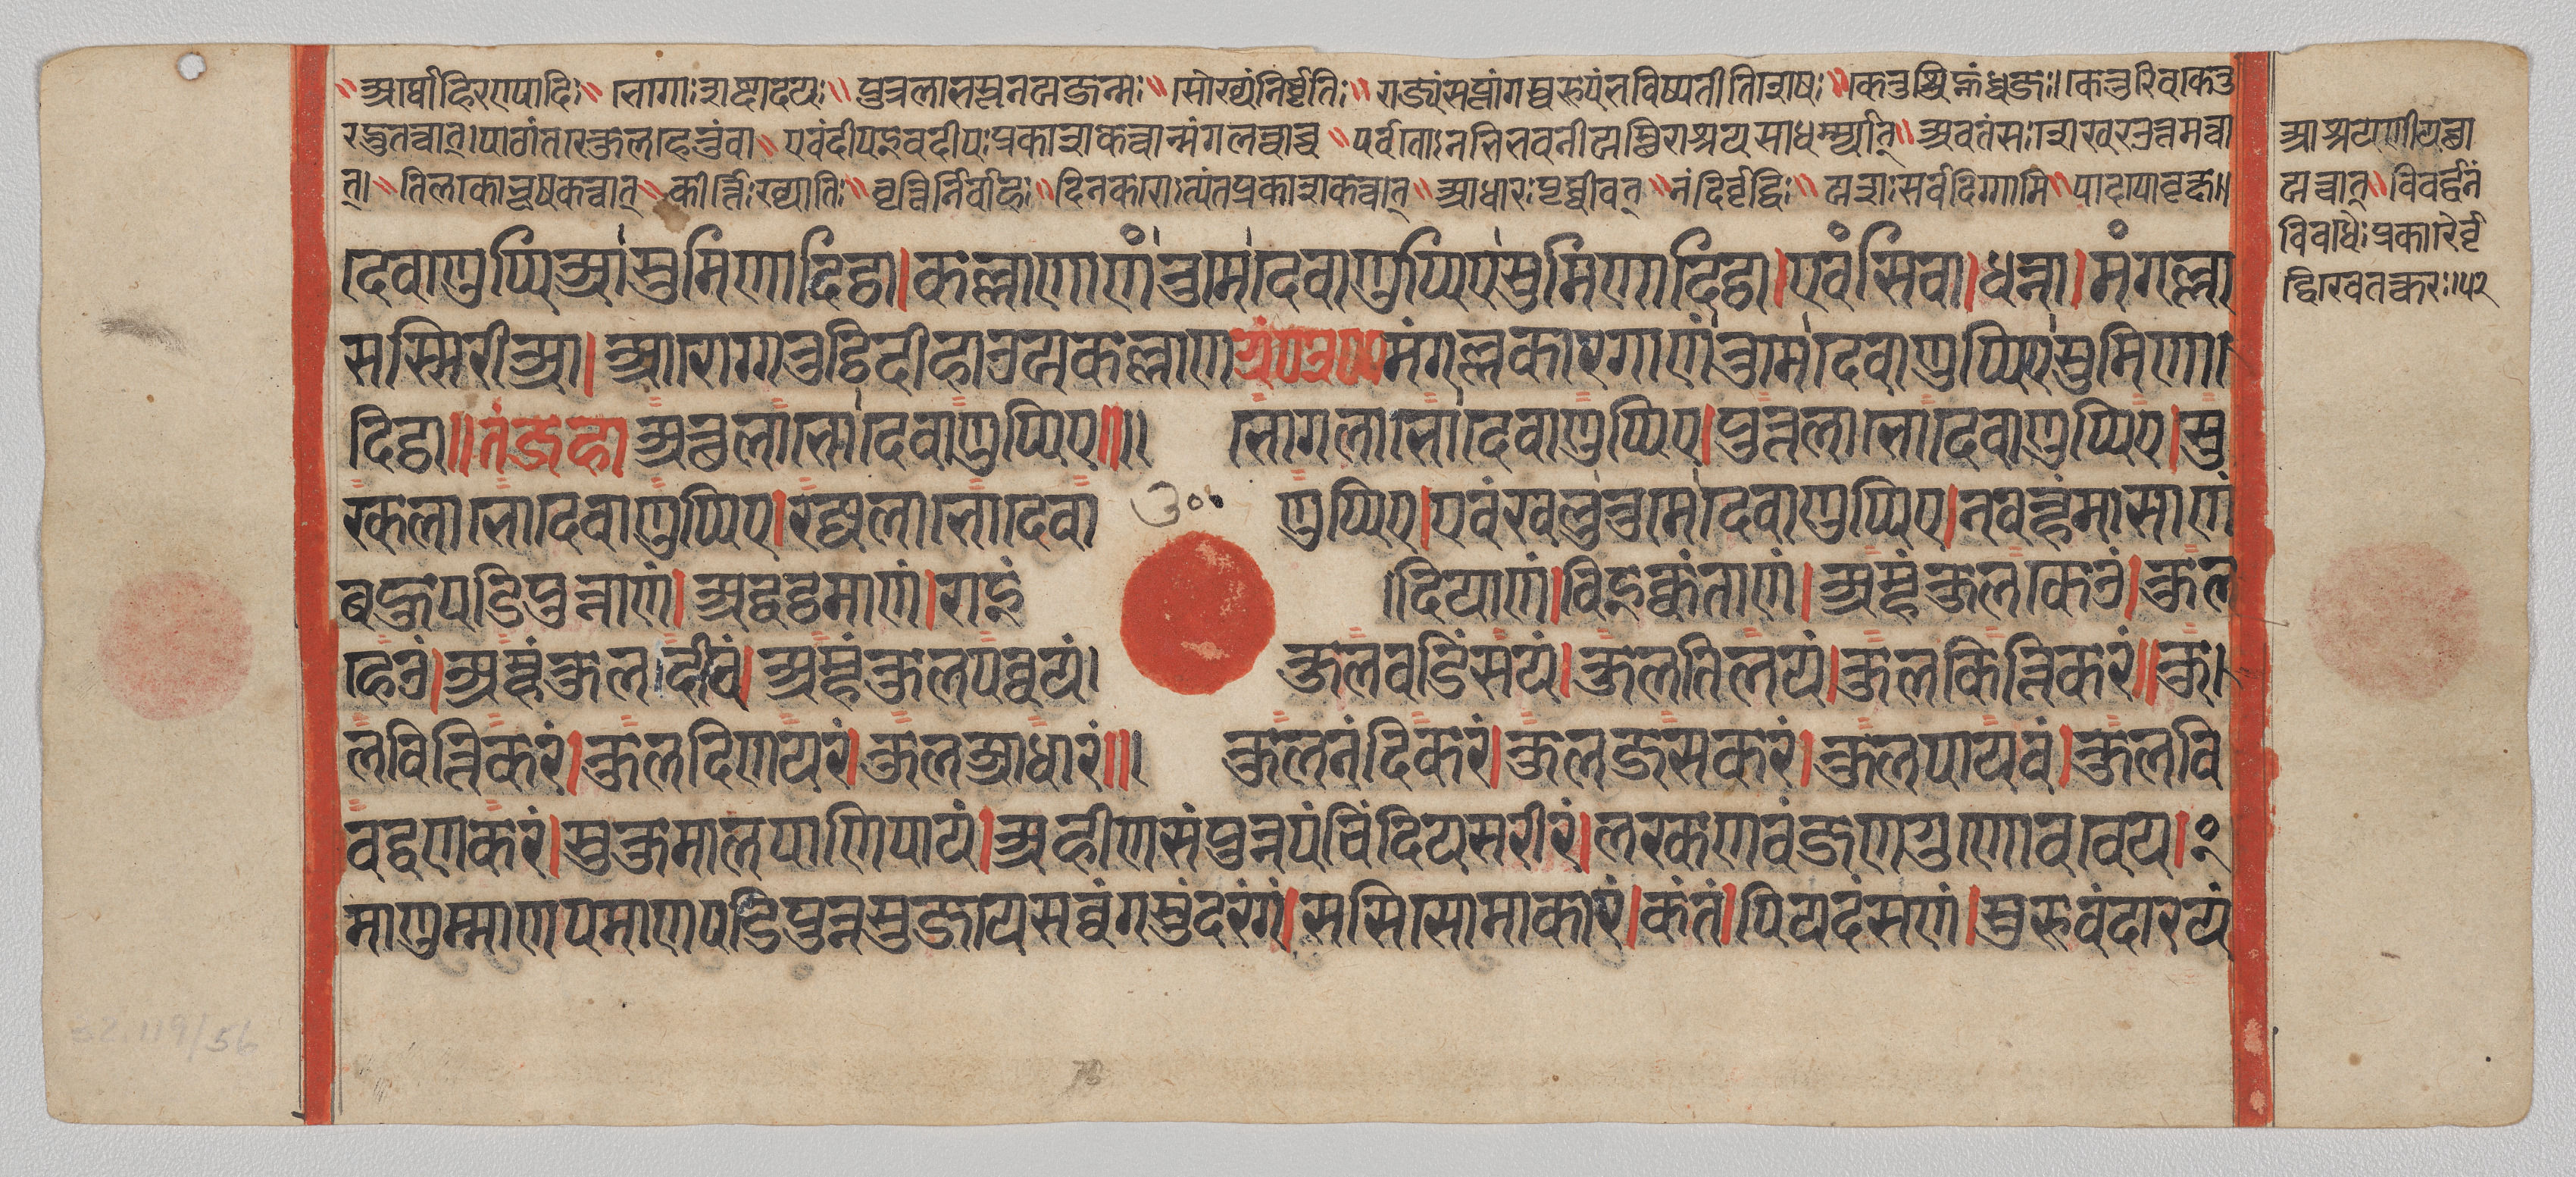 अर्थो हिरण्यादिः ॥ भोगाः शब्दादयः ॥ पुत्रलाभस्सूनोर्जन्म ॥ सौख्यं निर्वृतिः ॥ राज्यं सप्तांगस्वरूपं भविष्यतीति शेषः ॥ केतुश्चिह्नं ध्वजः । केतुरिव केतु
रद्भुतत्वात् । पाठांतरे कुलहेतुं वा ॥ एवं दीप इव दीपः प्रकाशकत्वान्मंगलत्वाच्च ॥ पर्वतो ऽनभिभवनीयस्थिराश्रयसाधर्म्म्यात् ॥ अवतंसः शेखर उत्तमत्वा
त् । ॥ तिलको भूषकत्वात् ॥ कीर्त्तिः ख्यातिः ॥ वृत्तिर्निर्वाहः ॥ दिनकरो ऽत्यंतप्रकाशकत्वात् ॥ आधारः पृथ्वीवत् ॥ नंदिर्वृद्धिः ॥ यशः सर्वदिग्गामि ॥ पादपो वृक्षः ॥
आश्रयणीयच्छा
यत्वात् ॥ विवर्द्धनं
विविधैः प्रकारैर्वृ
द्धिरेव तत्करः ॥ ५२
देवाणुप्पिआ सुमिणा दिट्ठा । कल्लाणा णं तुमे देवाणुप्पिए सुमिणा दिट्ठा । एवं सिवा । धन्ना । मंगल्ला
सस्सिरीआ । आरोग्गतुट्ठिदीहाउयकल्लाण ग्रं ३०० मंगल्लकारगा णं तुमे देवाणुप्पिए सुमिणा
दिट्ठा ॥ तं जहा अत्थलाभो देवाणुप्पिए ॥ भोगलाभो देवाणुप्पिए । पुत्तलाभो देवाणुप्पिए । सु
क्खलाभो देवाणुप्पिए । रज्जलाभो देवाणुप्पिए । एवं खलु तुमे देवाणुप्पिए । नवण्हं मासाणं
३००
बहुपडिपुन्नाणं । अद्धट्ठमाणं । राइंदियाणं । विइक्कंताणं । अम्हं कुलकेउं । कुल
हेउं । अम्हं कुलदीवं । अम्हं कुलपव्वयं । कुलवडिंसयं । कुलतिलयं । कुलकित्तिकरं ॥ कु
लवित्तिकरं । कुलदिणयरं । कुलआधारं ॥ कुलनंदिकरं । कुलजसकरं । कुलपायवं । कुलवि
वद्धणकरं । सुकुमालपाणिपायं । अहीणसंपुन्नपंचिंदियसरीरं । लक्खणवंजणगुणोववेयं ।
माणुम्माणपमाणपडिपुन्नसुजायसव्वंगसुंदरंगं । ससिसोमाकारं । कंतं । पियदंसणं । सुरूवं दारयं
52.119/56